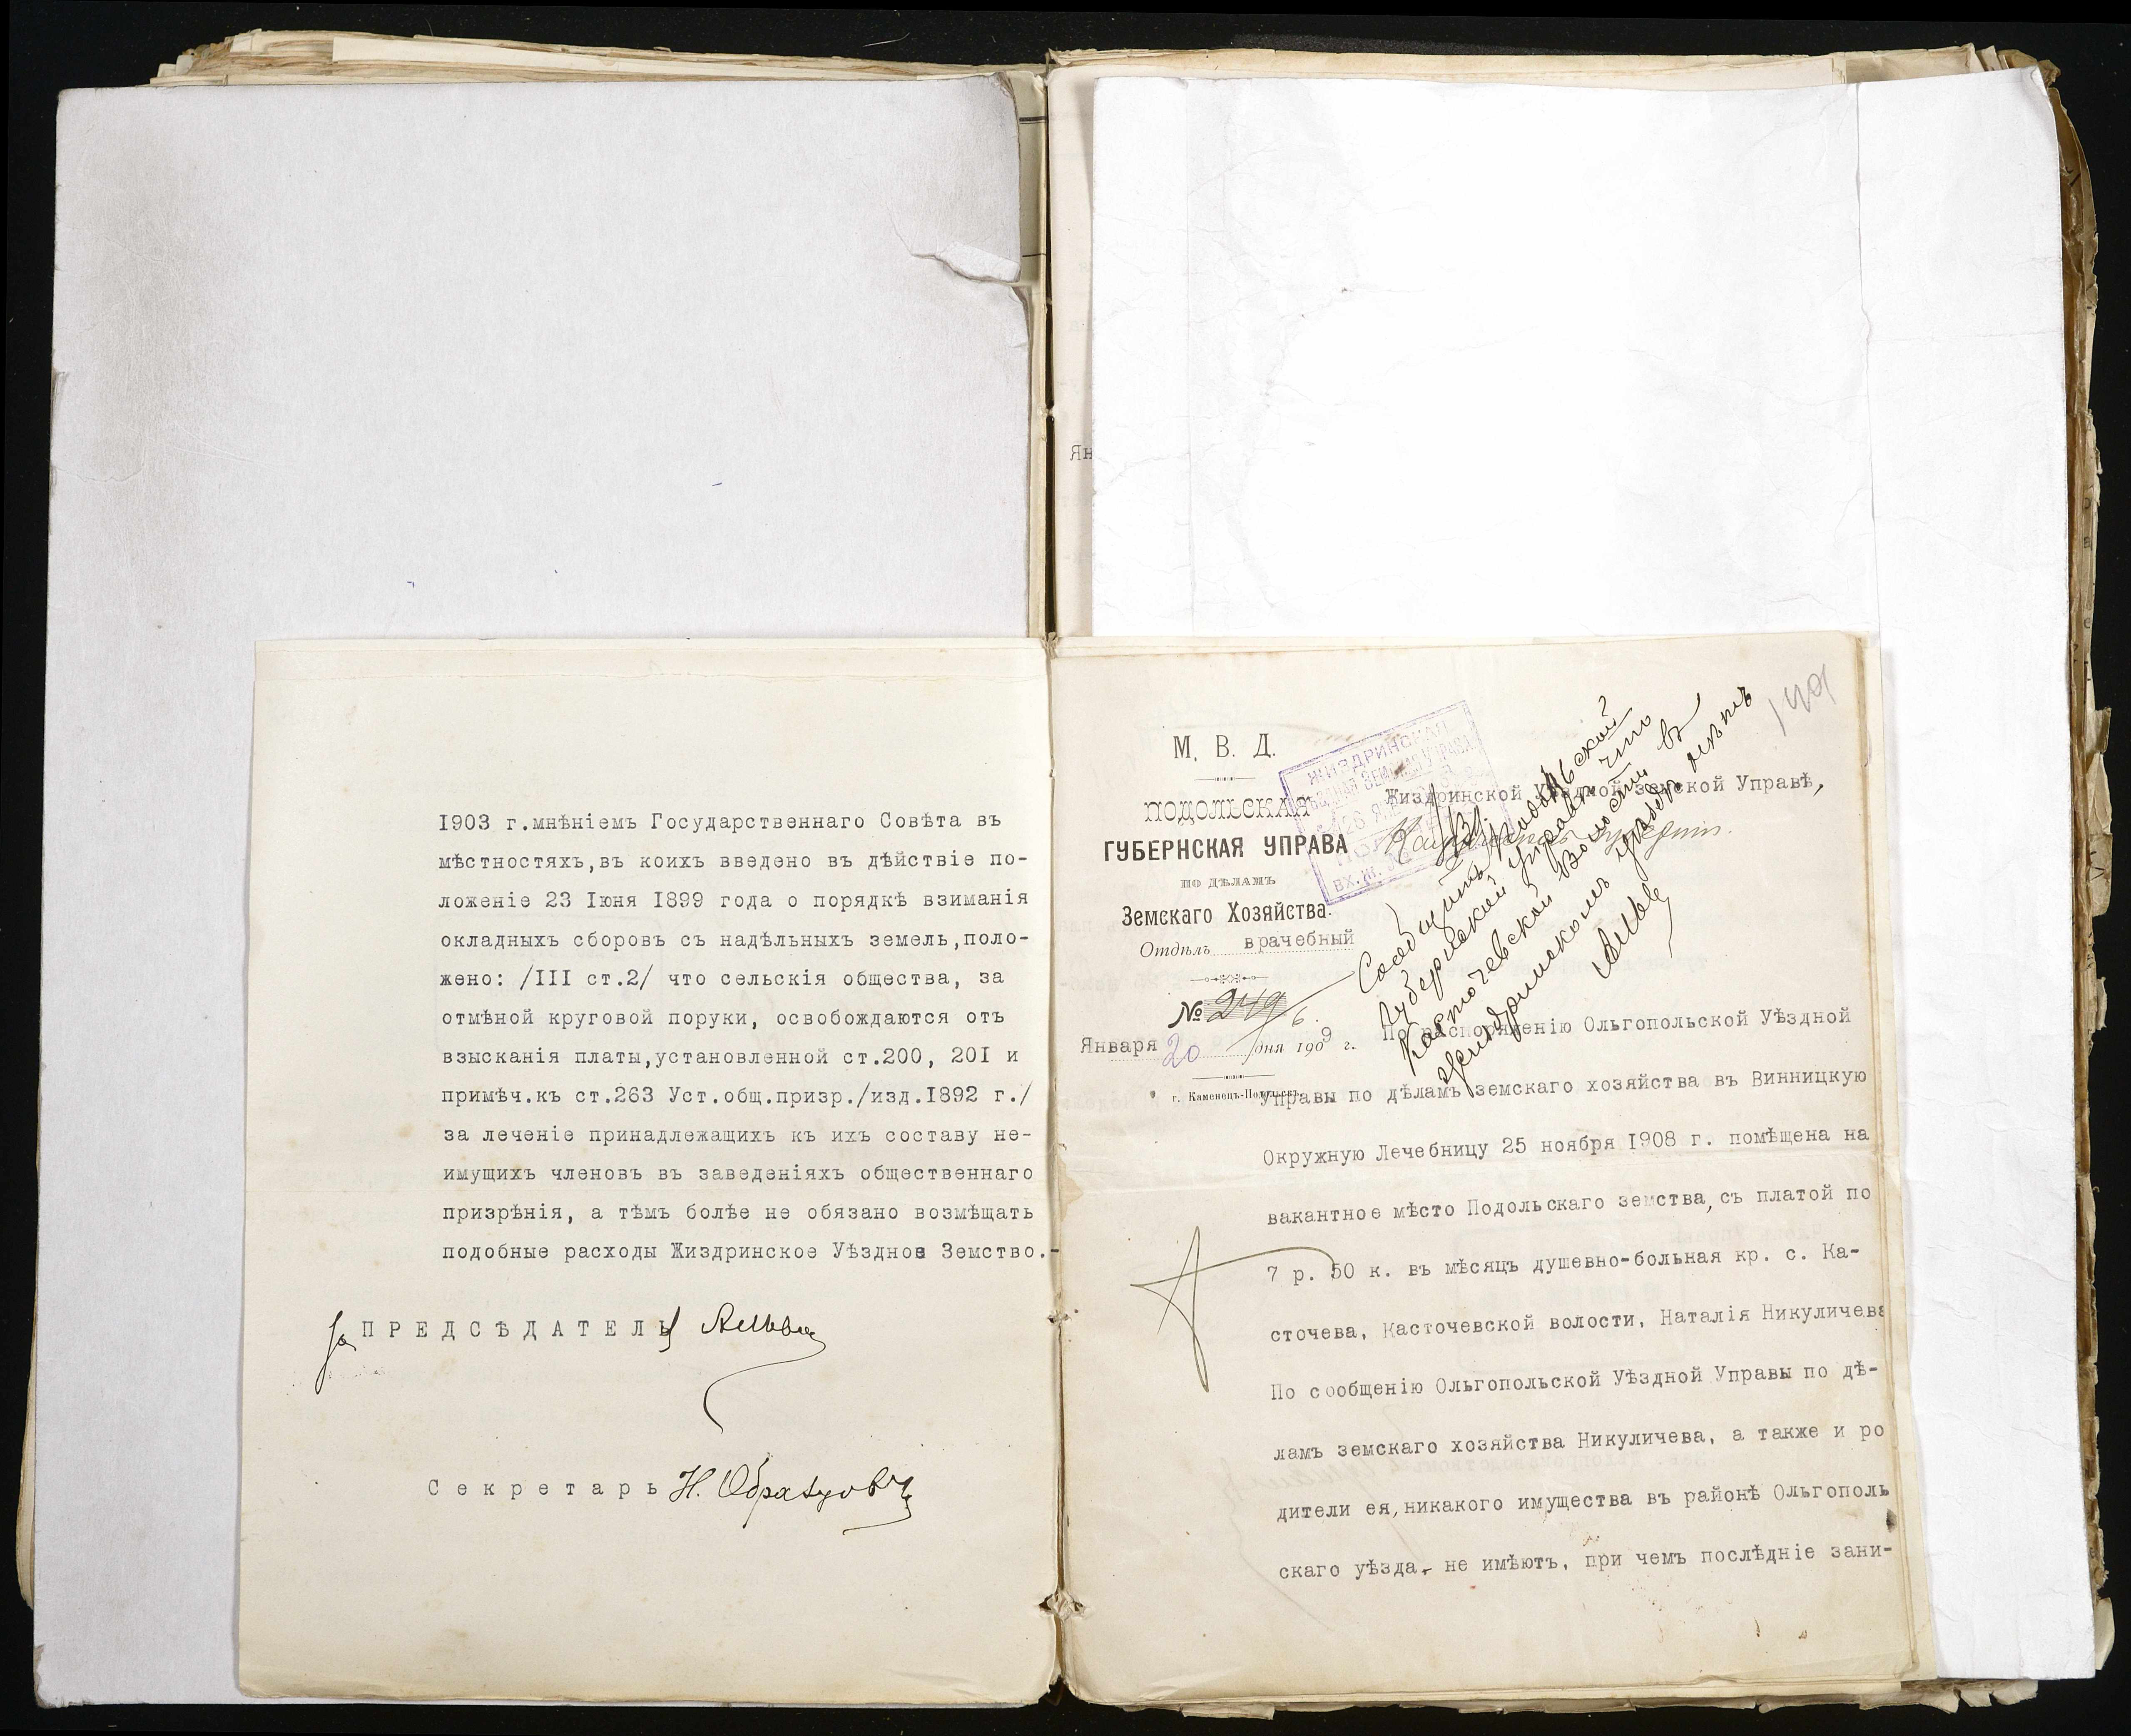 1903 г.мнѣніемъ Государственнаго Совѣта въ
мѣстностяхъ,въ коихъ введено въ дѣйствіе по-
ложеніе 23 Іюня 1899 года о порядкѣ взиманія
окладныхъ сборовъ съ надѣльныхъ земель,поло-
жено: /III ст.2/ что сельскія общества, за
отмѣной круговой поруки, освобождаются отъ
взысканія платы,установленной ст.200, 201 и
примѣч.къ ст.263 Уст.общ.призр./изд.1892 г./
за леченіе принадлежащихъ къ ихъ составу не-
имущихъ членовъ въ заведеніяхъ общественнаго
призрѣнія, а тѣмъ болѣе не обязано возмѣщать
подобные расходы Жиздринское Уѣздное Земство.-
за ПРЕДСѢДАТЕЛЯ
Секретарь Н. Образцовъ
149
М. В. Д.
ПОДОЛЬСКАЯ
ГУБЕРНСКАЯ УПРАВА
ПО ДѢЛАМЪ
Земскаго Хозяйства.
Отдѣлъ врачебный
№ 249/6.
Января 20 дня 1909 г.
г. Каменецъ-Подольскъ
ЖИЗДРИНСКАЯ
УѢЗДНАЯ ЗЕМСКАЯ УПРАВА
26 ЯНВ
ВХ. Ж. №
Жиздринской Уѣздной Земской Управѣ,
Калужской губерніи.
Сообщить Подольской
Губернской Управѣ что
Касточевской волости въ
Жиздринскомъ уѣздѣ нѣтъ
По распоряженію Ольгопольской Уѣздной
Управы по дѣламъ земскаго хозяйства въ Винницкую
Окружную Лечебницу 25 ноября 1908 г. помѣщена на
вакантное мѣсто Подольскаго земства, съ платой по
7 р. 50 к. въ мѣсяцъ душевно-больная кр. с. Ка-
сточева, Касточевской волости, Наталія Никуличева
По сообщенію Ольгопольской Уѣздной Управы по дѣ-
ламъ земскаго хозяйства Никуличева, а также и ро
дители ея, никакого имущества въ районѣ Ольгополь
скаго уѣзда, не имѣютъ, при чемъ послѣдніе зани-